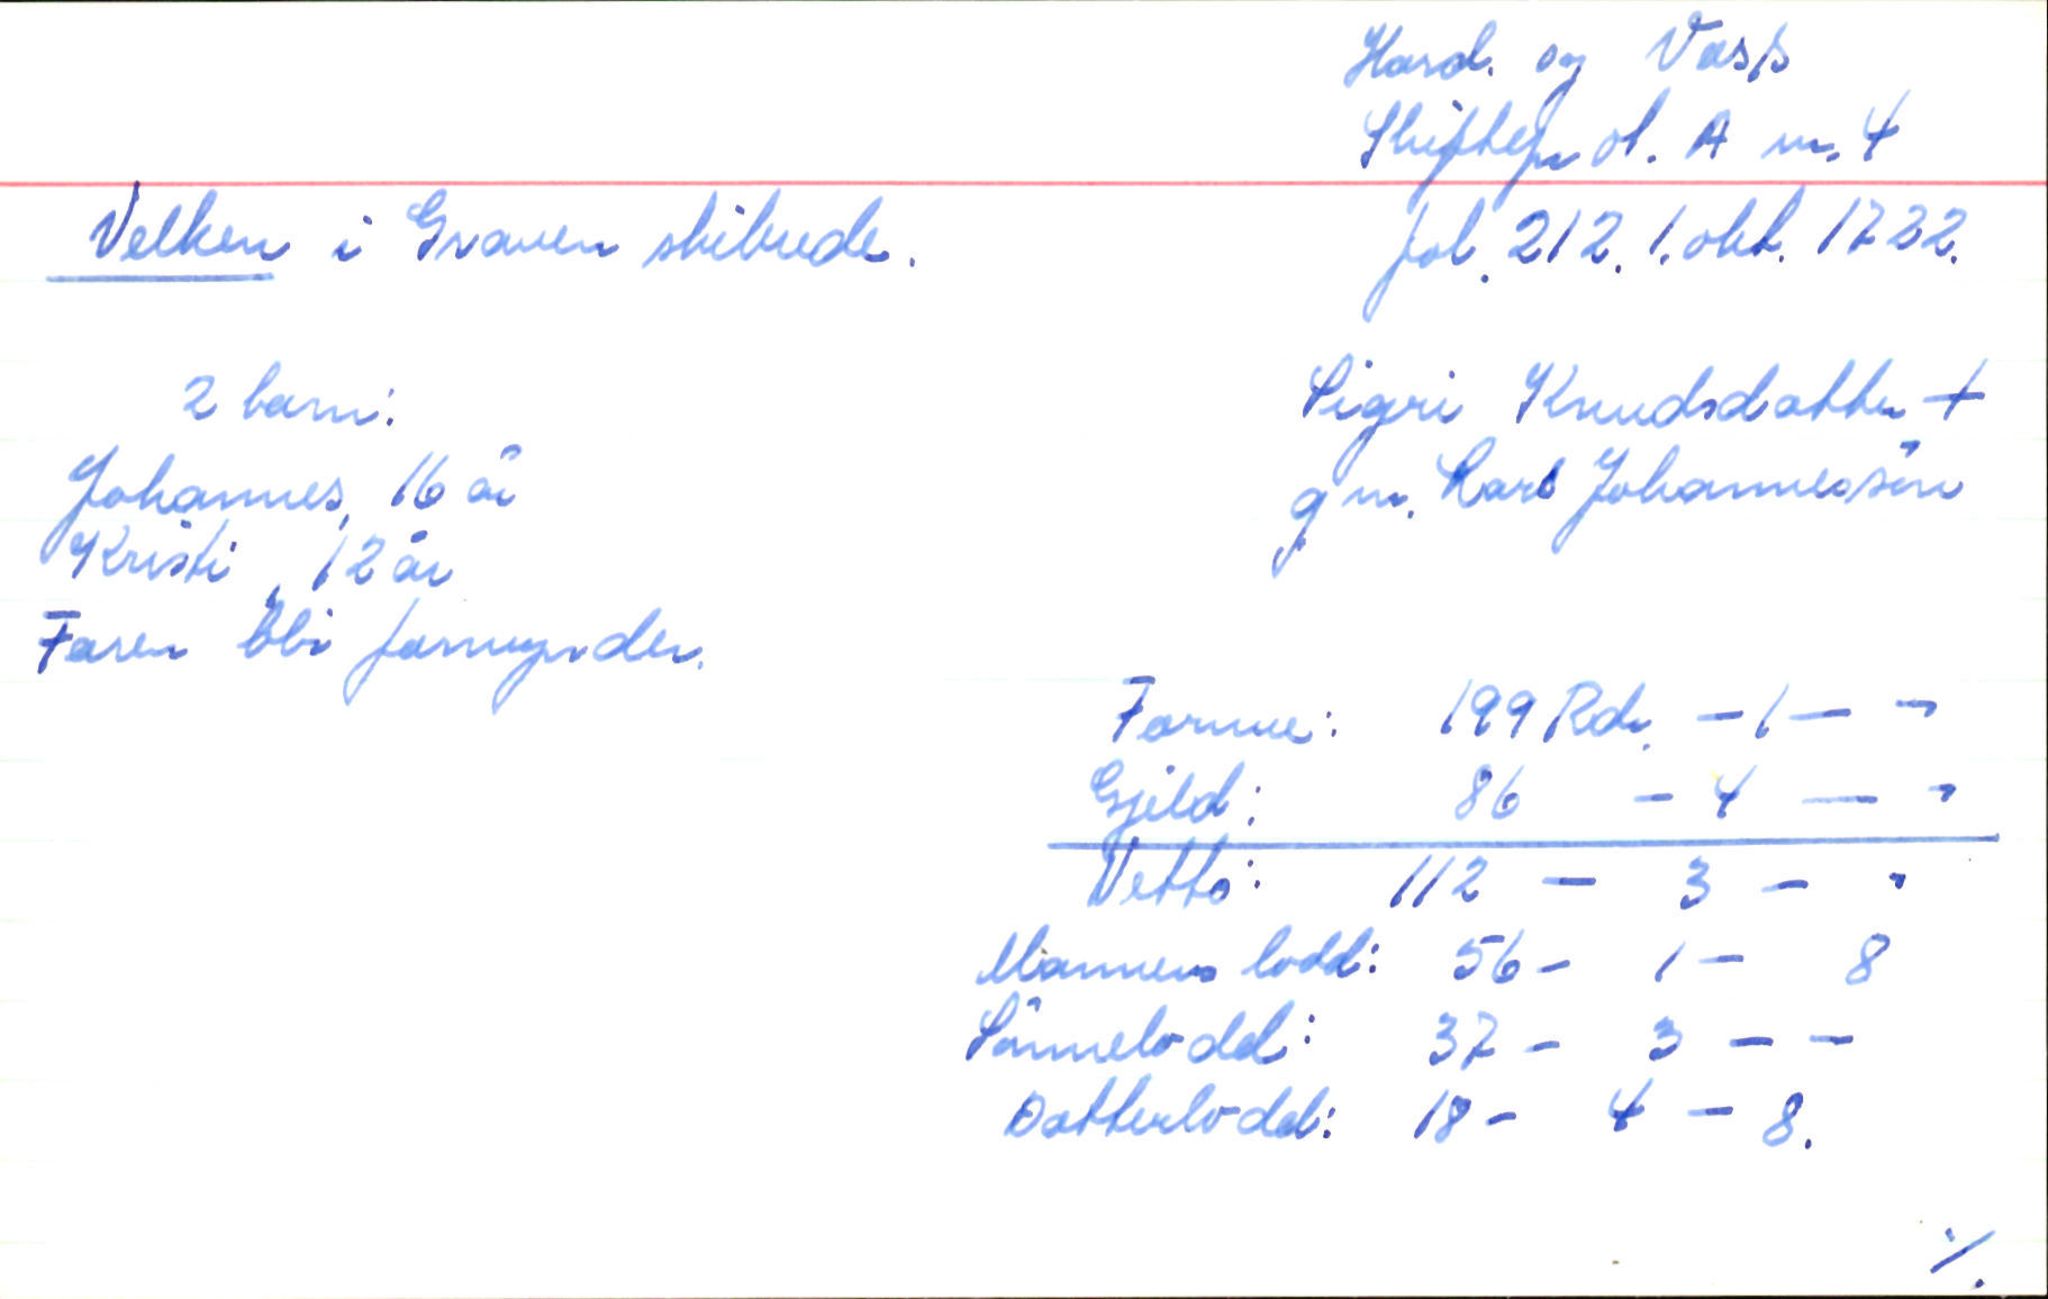 Hard. og Voss
Skiftepr ot. A nr. 4
Velken i Graven skibrede.
fol. 212. 1. okt. 1722.
2 barn:
Johannes, 16 år
Kristi, 12 år
Faren bli formynder.
Sigri Knudsdotter +
g m. Lars Johannessön
Formue: 199 Rdr. - 1 - "
Gjeld: 86 - 4 - "
Netto: 112 - 3 - "
Mannens lodd: 56 - 1 - 8
Sönnelodd: 37 - 3 - -
Dotterlodd: 18 - 4 - 8.
./.